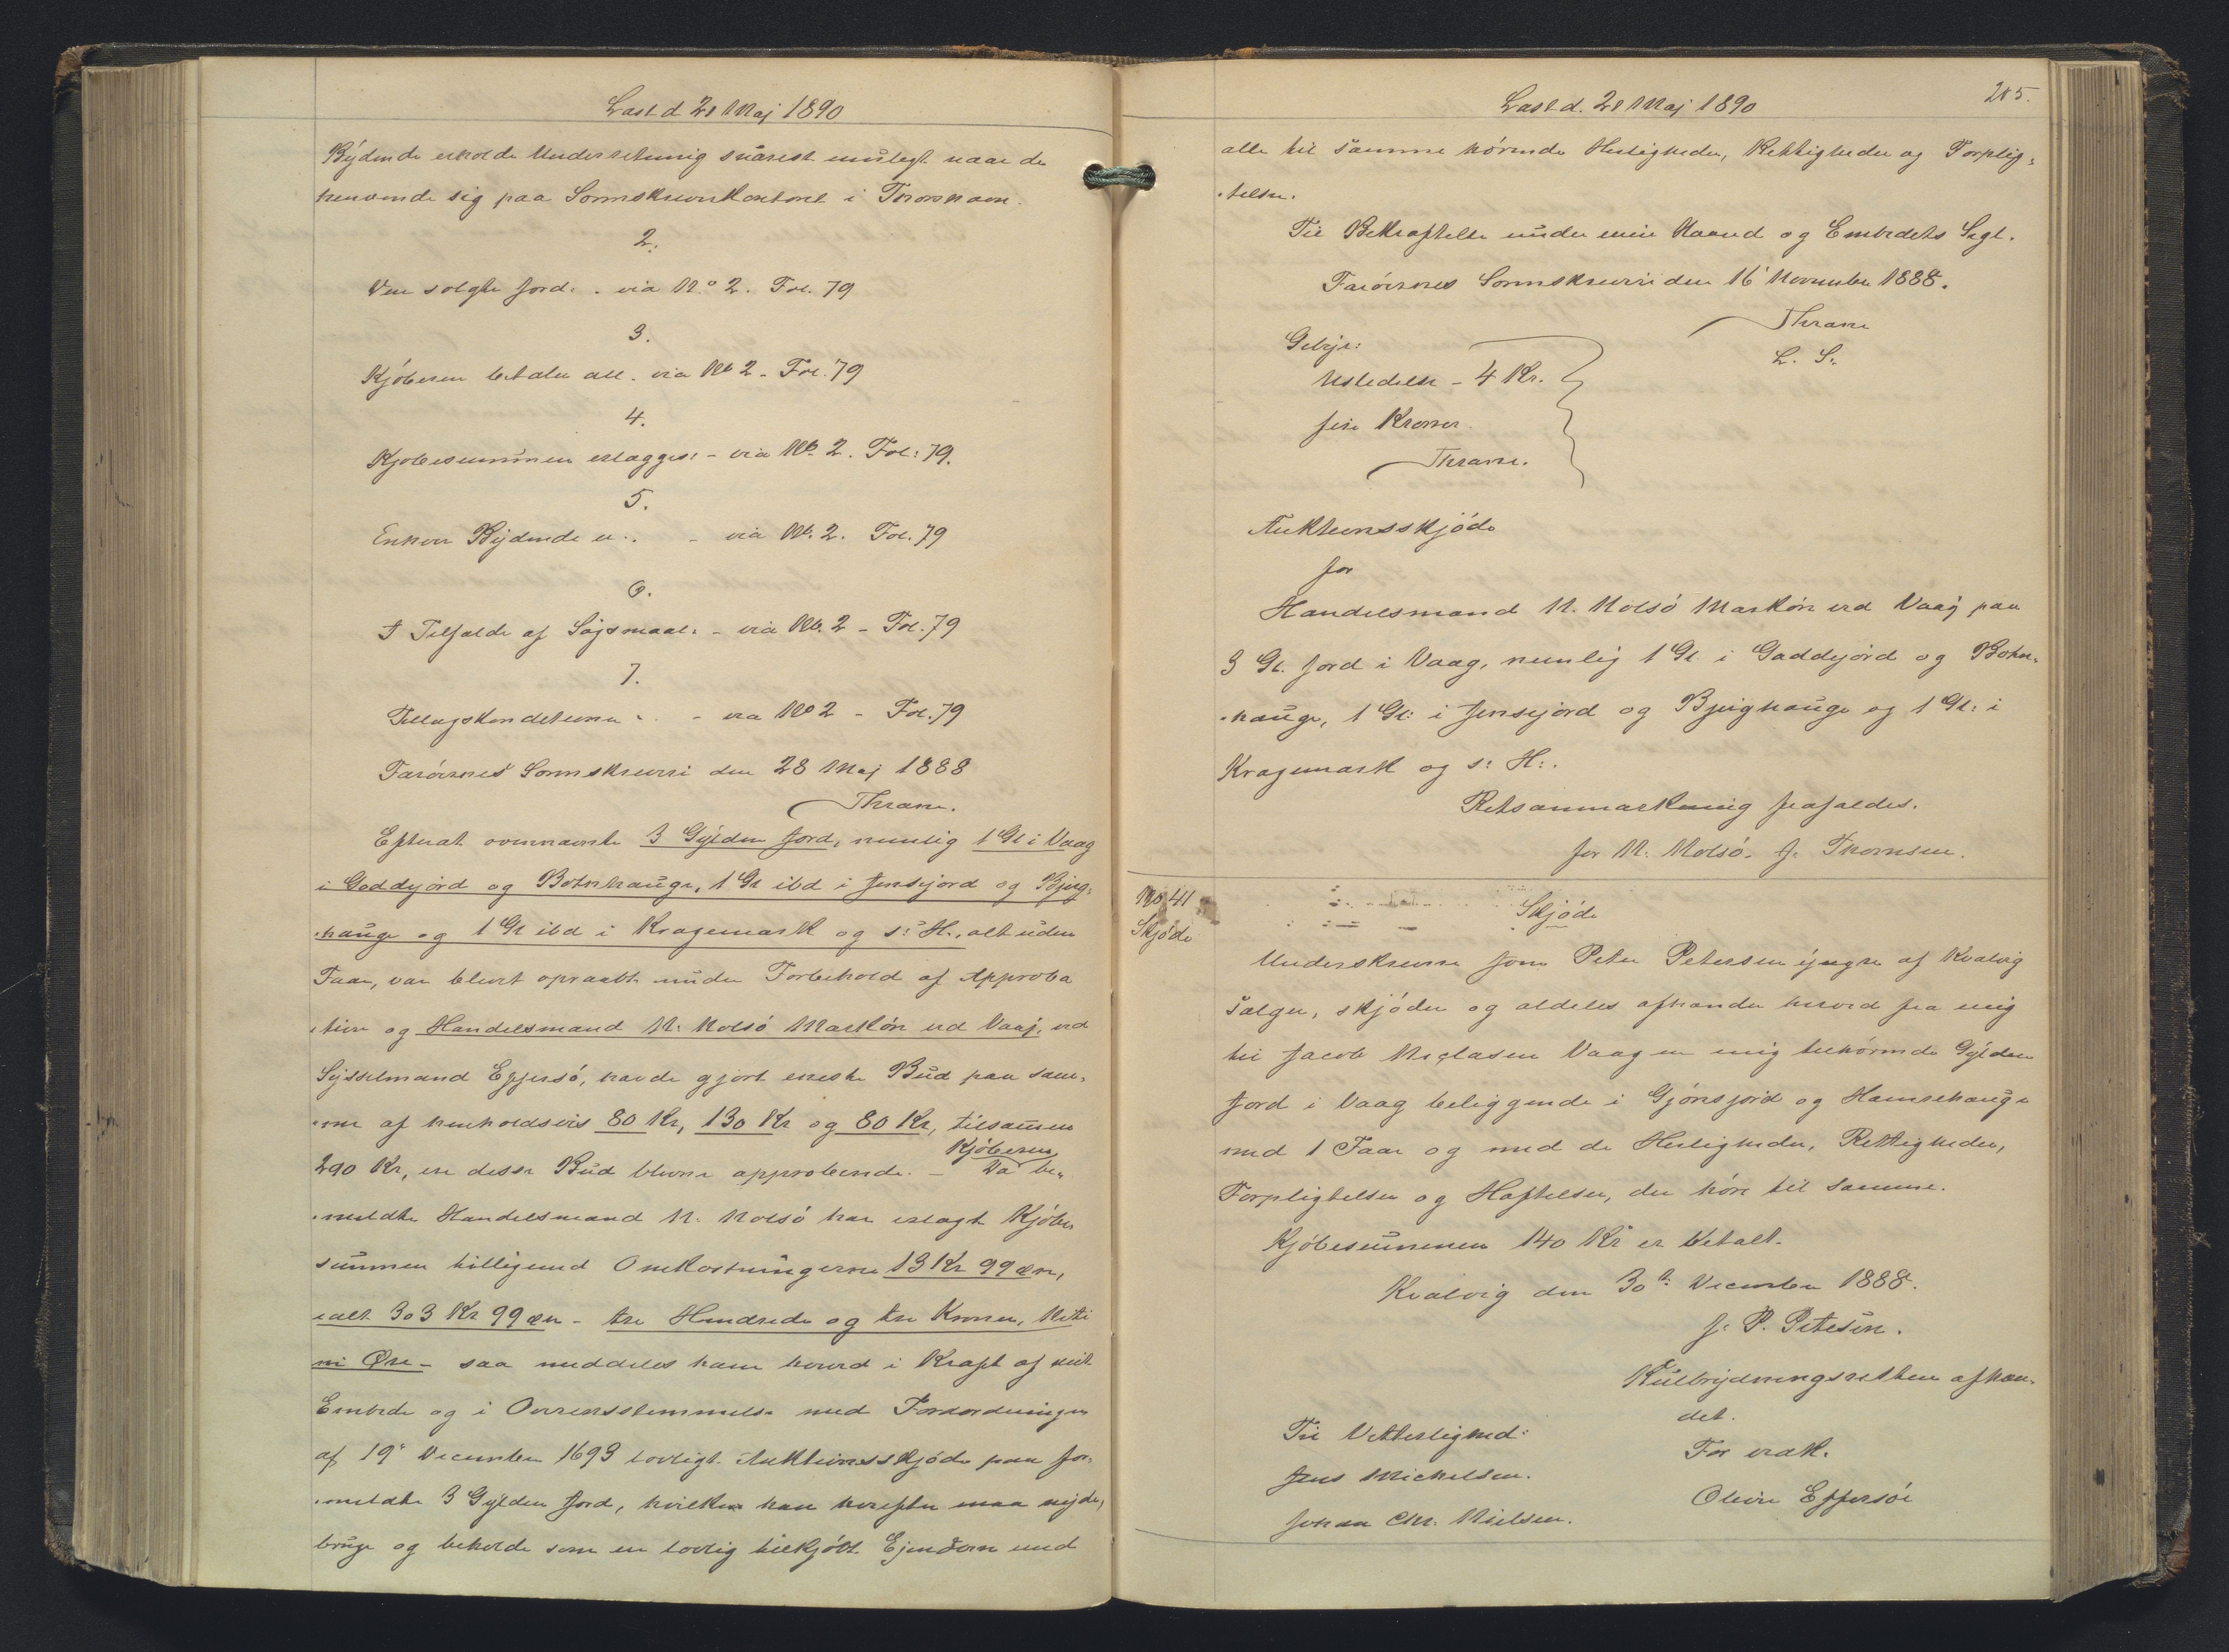 Læst d 21 Maj 1890
Bydende erholde Underretning snarest muligt naar de
henvende sig paa Sorenskriverkontoret i Thorshavn.
2.
Den solgte Jord: . via No 2. Fol. 79
3.
Kjøberen betaler all. via No 2. Fol. 79
4.
Kjøbesummen erlægges: - via No. 2. Fol: 79.
5.
Enhver Bydende er . . - via No. 2. Fol. 79
6.
I Tilfælde af Søgsmaal: - via No. 2 - Fol. 79
7.
Tillægskonditioner : . - via No 2 - Fol. 79
Færøernes Sorenskriveri den 28 Maj 1888
Thrane.
Efterat ovennævnte 3 Gylden Jord, nemlig 1 Gl i Vaag
i Gaddejord og Botnhauge, 1 Gl ibd i Jensejord og Bjerg-
-hauge og 1 Gl ibd i Kragemark og s: H., alt uden
Faar, var blevt opraabt under Forbehold af Approba
-tion og Handelsmand N: Nolsø Markøre ved Vaag, ved
Sysselmand Effersø, havde gjort eneste Bud paa sam-
-me af henholdsvis 80 Kr, 130 Kr og 80 Kr, tilsammen
290 Kr, ere disse Bud blevne approberede. - Da Kjøberen be-
-meldte Handelsmand N. Nolsø har erlagt Kjøbe
summen tilligemed Omkostningerne 13 Kr 99 Øre,
ialt 303 Kr 99 Øre - tre Hundrede og tre Kroner, Niti
ni Øre - saa meddeles ham herved i Kraft af mit
Embede og i Overensstemmelse med Forordningen
af 19de December 1693 lovligt Auktionsskjøde paa for-
-meldte 3 Gylden Jord, hvilken han herefter maa nyde,
bruge og beholde som en lovlig tilkjøbt Ejendom med
Læst d. 21 Maj 1890
285.
alle til samme hørende Herligheder, Rettigheder og Forplig-
-telser.
Til Bekræftelse under min Haand og Embedets Segl.
Færøernes Sorenskriveri den 16 November 1888.
Thrane
L. S.
Gebyr:
Udstedelse - 4 Kr.
fire Kroner.
Thrane.
Auktionsskjøde
for
Handelsmand N. Nolsø Markøre ved Vaag paa
3 Gl. Jord i Vaag, nemlig 1 Gl. i Gaddejord og Botn-
-hauge, 1 Gl: i Jensejord og Bjerghauge og 1 Gl: i
Kragemark og s: H:.
Retsanmærkning frafaldes.
for N. Nolsø. J. Thomsen.
No 41
Skjøde
Skjøde
Underskrevne Jens Peter Petersen yngre af Kvalvig
sælger, skjøder og aldeles afhænder herved fra mig
til Jacob Niclasen Vaag en mig tilhørende Gylden
Jord i Vaag beliggende i Gjónsjord og Hamrehauge
med 1 Faar og med de Herligheder, Rettigheder,
Forpligtelser og Hæftelser, der høre til samme.
Kjøbesummen 140 Kr er betalt.
Kvalvig den 30te December 1888.
J. P. Petersen.
Kulbrydningsretten afhæn-
det.
Til Vitterlighed:
For vrak.
Jens Mickelsen.
Oliver Effersøe
Johan Chr. Nielsen.